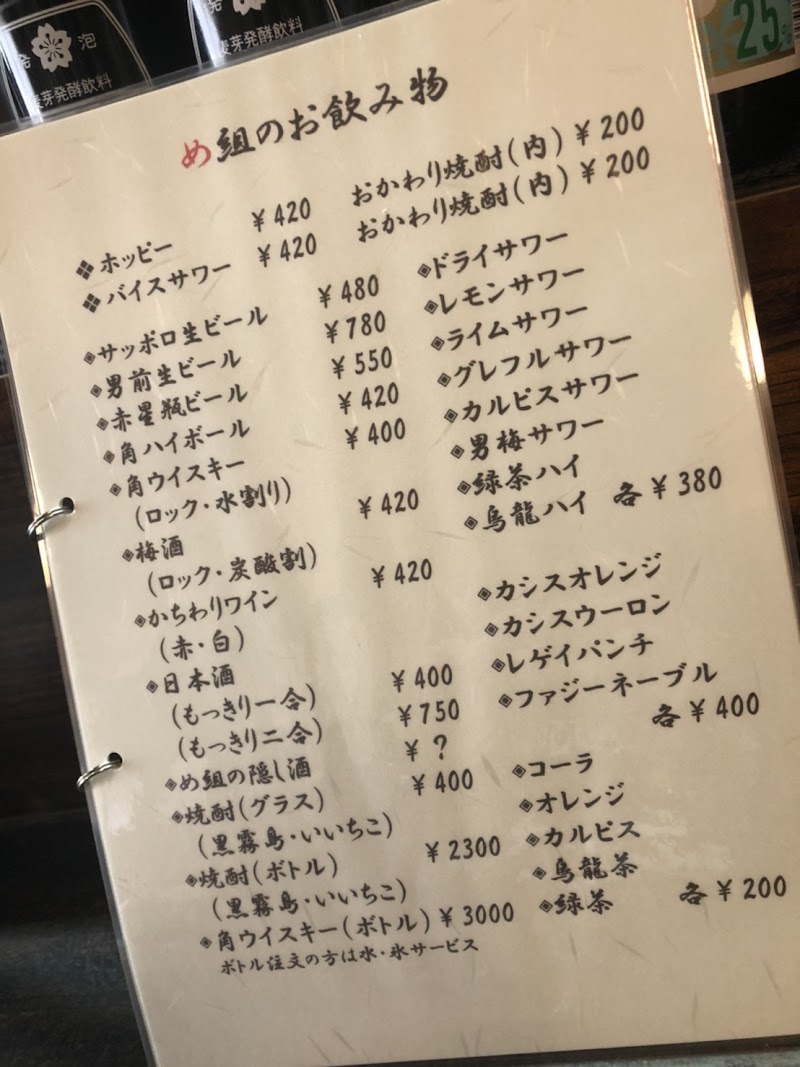 発 泡
麦芽発酵飲料
麦芽発酵飲料
25
め組のお飲み物
❖ホッピー ¥420 おかわり焼酎(内) ¥200
❖バイスサワー ¥420 おかわり焼酎(内) ¥200
◈サッポロ生ビール ¥480
◈男前生ビール ¥780
◈赤星瓶ビール ¥550
◈角ハイボール ¥420
◈角ウイスキー ¥400
(ロック・水割り)
◈梅酒 ¥420
(ロック・炭酸割)
◈かちわりワイン ¥420
(赤・白)
◈日本酒
(もっきり一合) ¥400
(もっきり二合) ¥750
◈め組の隠し酒 ¥ ?
◈焼酎(グラス) ¥400
(黒霧島・いいちこ)
◈焼酎(ボトル) ¥2300
(黒霧島・いいちこ)
◈角ウイスキー(ボトル) ¥3000
ボトル注文の方は水・氷サービス
◈ドライサワー
◈レモンサワー
◈ライムサワー
◈グレフルサワー
◈カルピスサワー
◈男梅サワー
◈緑茶ハイ
◈烏龍ハイ 各¥380
◈カシスオレンジ
◈カシスウーロン
◈レゲイパンチ
◈ファジーネーブル
各¥400
◈コーラ
◈オレンジ
◈カルピス
◈烏龍茶
◈緑茶 各¥200